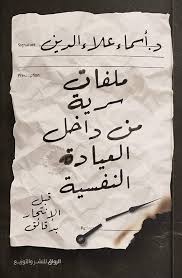 د. أسماء علاء الدين
Signature
Prescription
ملفات
سرية
من داخل
العيادة
النفسية
قبل
الإنتحار
بدقائق
By
الرواق للنشر والتوزيع